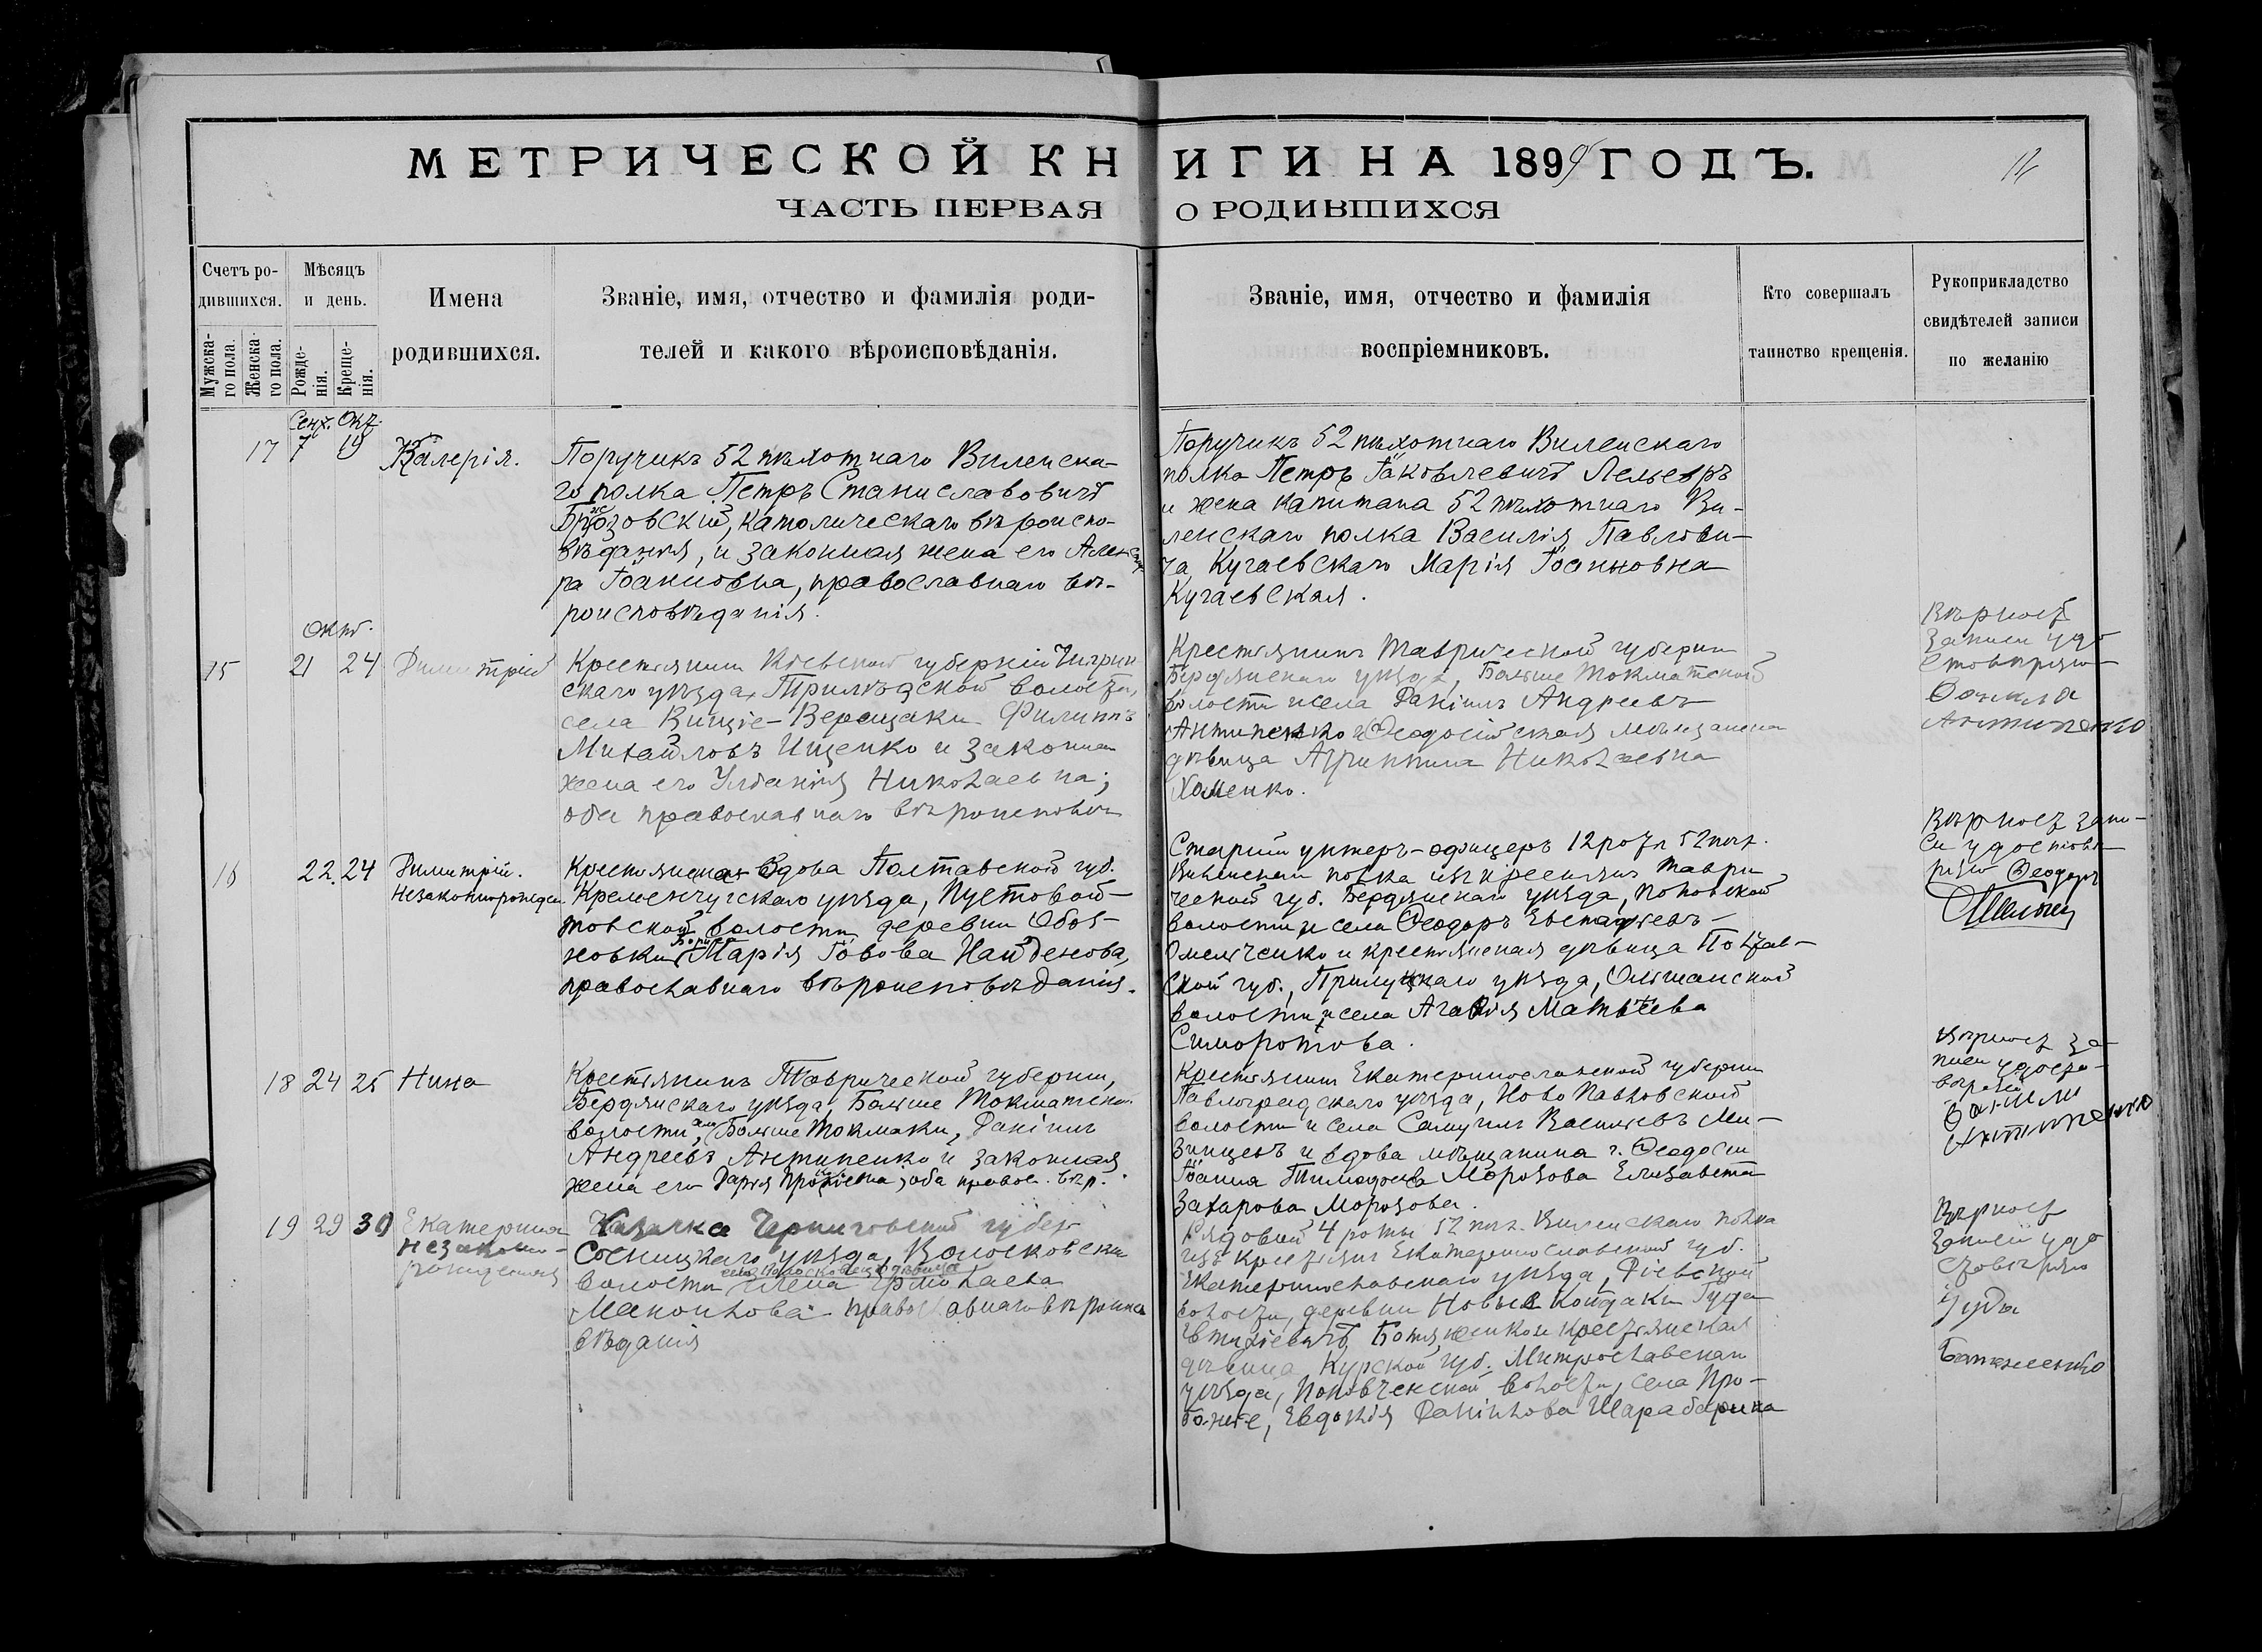 МЕТРИЧЕСКОЙ КНИГИ НА 1895 ГОДЪ.
ЧАСТЬ ПЕРВАЯ О РОДИВШИХСЯ
Счетъ ро-
дившихся.
Мужска-
го пола.
Женска-
го пола.
Мѣсяцъ
и день.
Рожде-
нія.
Креще-
нія.
Имена
родившихся.
Званіе, имя, отчество и фамилія роди-
телей и какого вѣроисповѣданія.
Званіе, имя, отчество и фамилія
воспріемниковъ.
Кто совершалъ
таинство крещенія.
Рукоприкладство
свидѣтелей записи
по желанію
Сент. Окт.
17 7 19 Валерія.
Поручикъ 52 пѣхотнаго Виленска-
го полка Петръ Станиславовичъ
католическаго вѣроиспо-
вѣданія, и законная жена его Александ
ра Іоанновна, православнаго вѣ-
роисповѣданія.
Поручикъ 52 пѣхотнаго Виленскаго
полка Петръ Іаковлевичъ
и жена капитана 52 пѣхотнаго Ви-
ленскаго полка Василія Павлови-
ча Кугаевскаго Марія Іоанновна
Кугаевская.
Окт.
15 21 24 Димитрій
Крестьянинъ Кіевской губерніи Чигрин
скаго уѣзда, Трилѣсской волости,
села Вищіе-Верещаки Филиппъ
Михайловъ Ищенко и законная
жена его Николаевна;
оба православнаго вѣроисповѣд
Крестьянинъ Таврической губерніи
Бердянскаго уѣзда, Больше Токматской
волости и села Даніилъ Андреевъ
Антипенко и Ѳеодосійская мѣщанская
дѣвица Агриппина Николаевна
Хоменко.
Вѣрность
записи удо
стовѣряю
Данила
Антипенко
16 22. 24 Димитрій.
Незаконнорожден
Крестьянская вдова Полтавской губ.
Кременчугскаго уѣзда, Пустовой-
товской волости деревни
новки Марія Іовова Найденова,
православнаго вѣроисповѣданія.
Старшій унтеръ-офицеръ 12 роты 52 пѣх.
Виленскаго полка изъ крестьянъ Таври
ческой губ. Бердянскаго уѣзда, Поповской
волости и села Ѳеодоръ Евстафіевъ
Омельченко и крестьянская дѣвица Полтав-
ской губ., Прилукскаго уѣзда, Ольшанской
волости и села Агафія Матвѣева
Вѣрность запи-
си удостовѣ
ряю Ѳеодоръ
18 24 25 Нина
Крестьянинъ Таврической губерніи,
Бердянскаго уѣзда, Больше Токматской
волости, Больше Токмаки, Даніилъ
Андреевъ Антипенко и законная
жена его Дарія оба правос. вѣр.
Крестьянинъ Екатеринославской губерніи
Павлоградскаго уѣзда, Ново Павловской
волости и села Самуилъ Васильевъ Ми-
зинцевъ и вдова мѣщанина г. Ѳеодосіи
Іоанна Тимоѳеева Морозова Елизавета
Захарова Морозова.
Вѣрность за-
писи удосто-
вѣряю
Данила
Антипенко
19 29 30 Екатерина
незаконно-
рожденная
Казачка Черниговской губер
Сосницкаго уѣзда, Волосковской
волости села дѣвица
Елена
православнаго вѣроиспо
вѣданія
Рядовой 4 роты 52 пѣх. Виленскаго полка
изъ крестьянъ Екатеринославской губ.
Екатеринославскаго уѣзда, Діевской
волости, деревни Новые Койдаки Іуда
Евтихіевичъ и крестьянская
дѣвица Курской губ.
уѣзда, волости, села
Евдокія Даніилова
Вѣрность
записи удо
стовѣряю
Іуда
Баженко